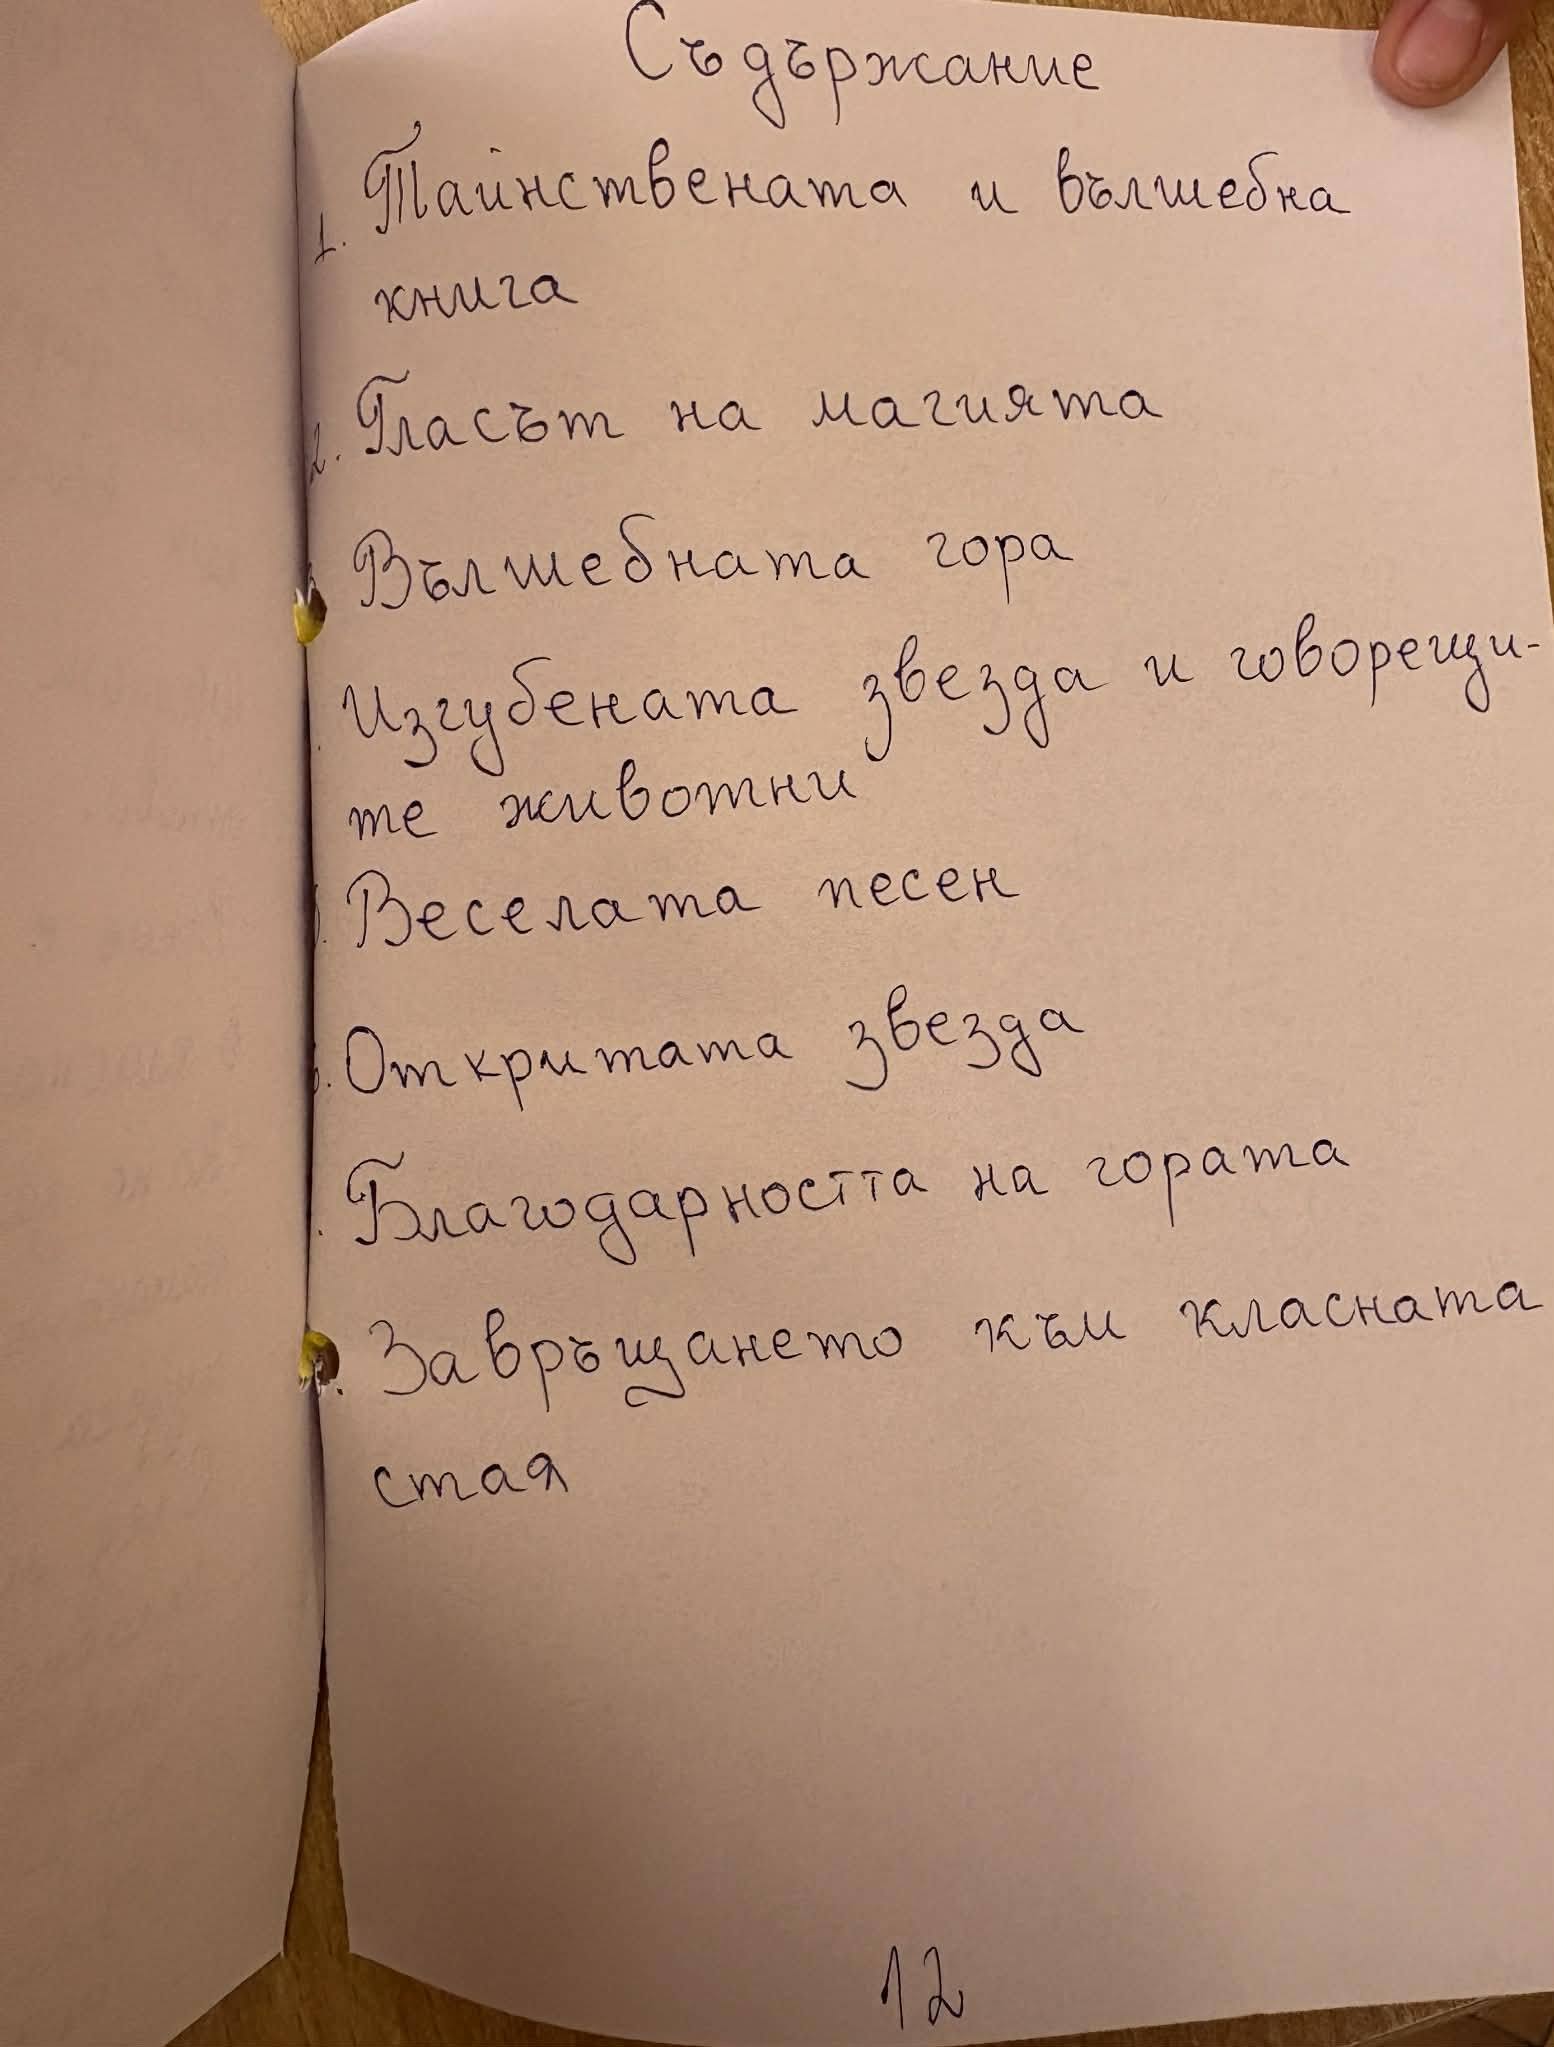 Съдържание
1. Тайнствената и вълшебна
книга
2. Гласът на магията
Вълшебната гора
Изгубената звезда и говорещи-
те животни
Веселата песен
Откритата звезда
Благодарността на гората
Завръщането към класната
стая
12